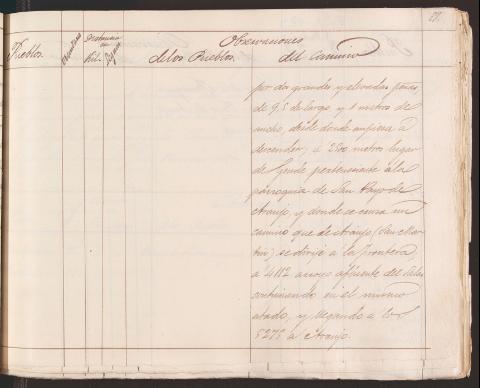 Observaciones
Pueblos
Distancias en
Kil.
de los Pueblos
del camino
por dos grandes y elevadas peñas
de 9,5 de largo, y 1 metros de
ancho, desde donde empieza a
descender; 4 2500 metros lugar
de Gende perteneciente a la
parroquia de San Payo de
Araujo, y donde se cruza un
camino que de Araujo (San Mar
tin) se dirije á la frontera,
a 4112 arroyo afluente del Salas
continuando en el mismo
estado, y llegando a los
5275 a Araujo.